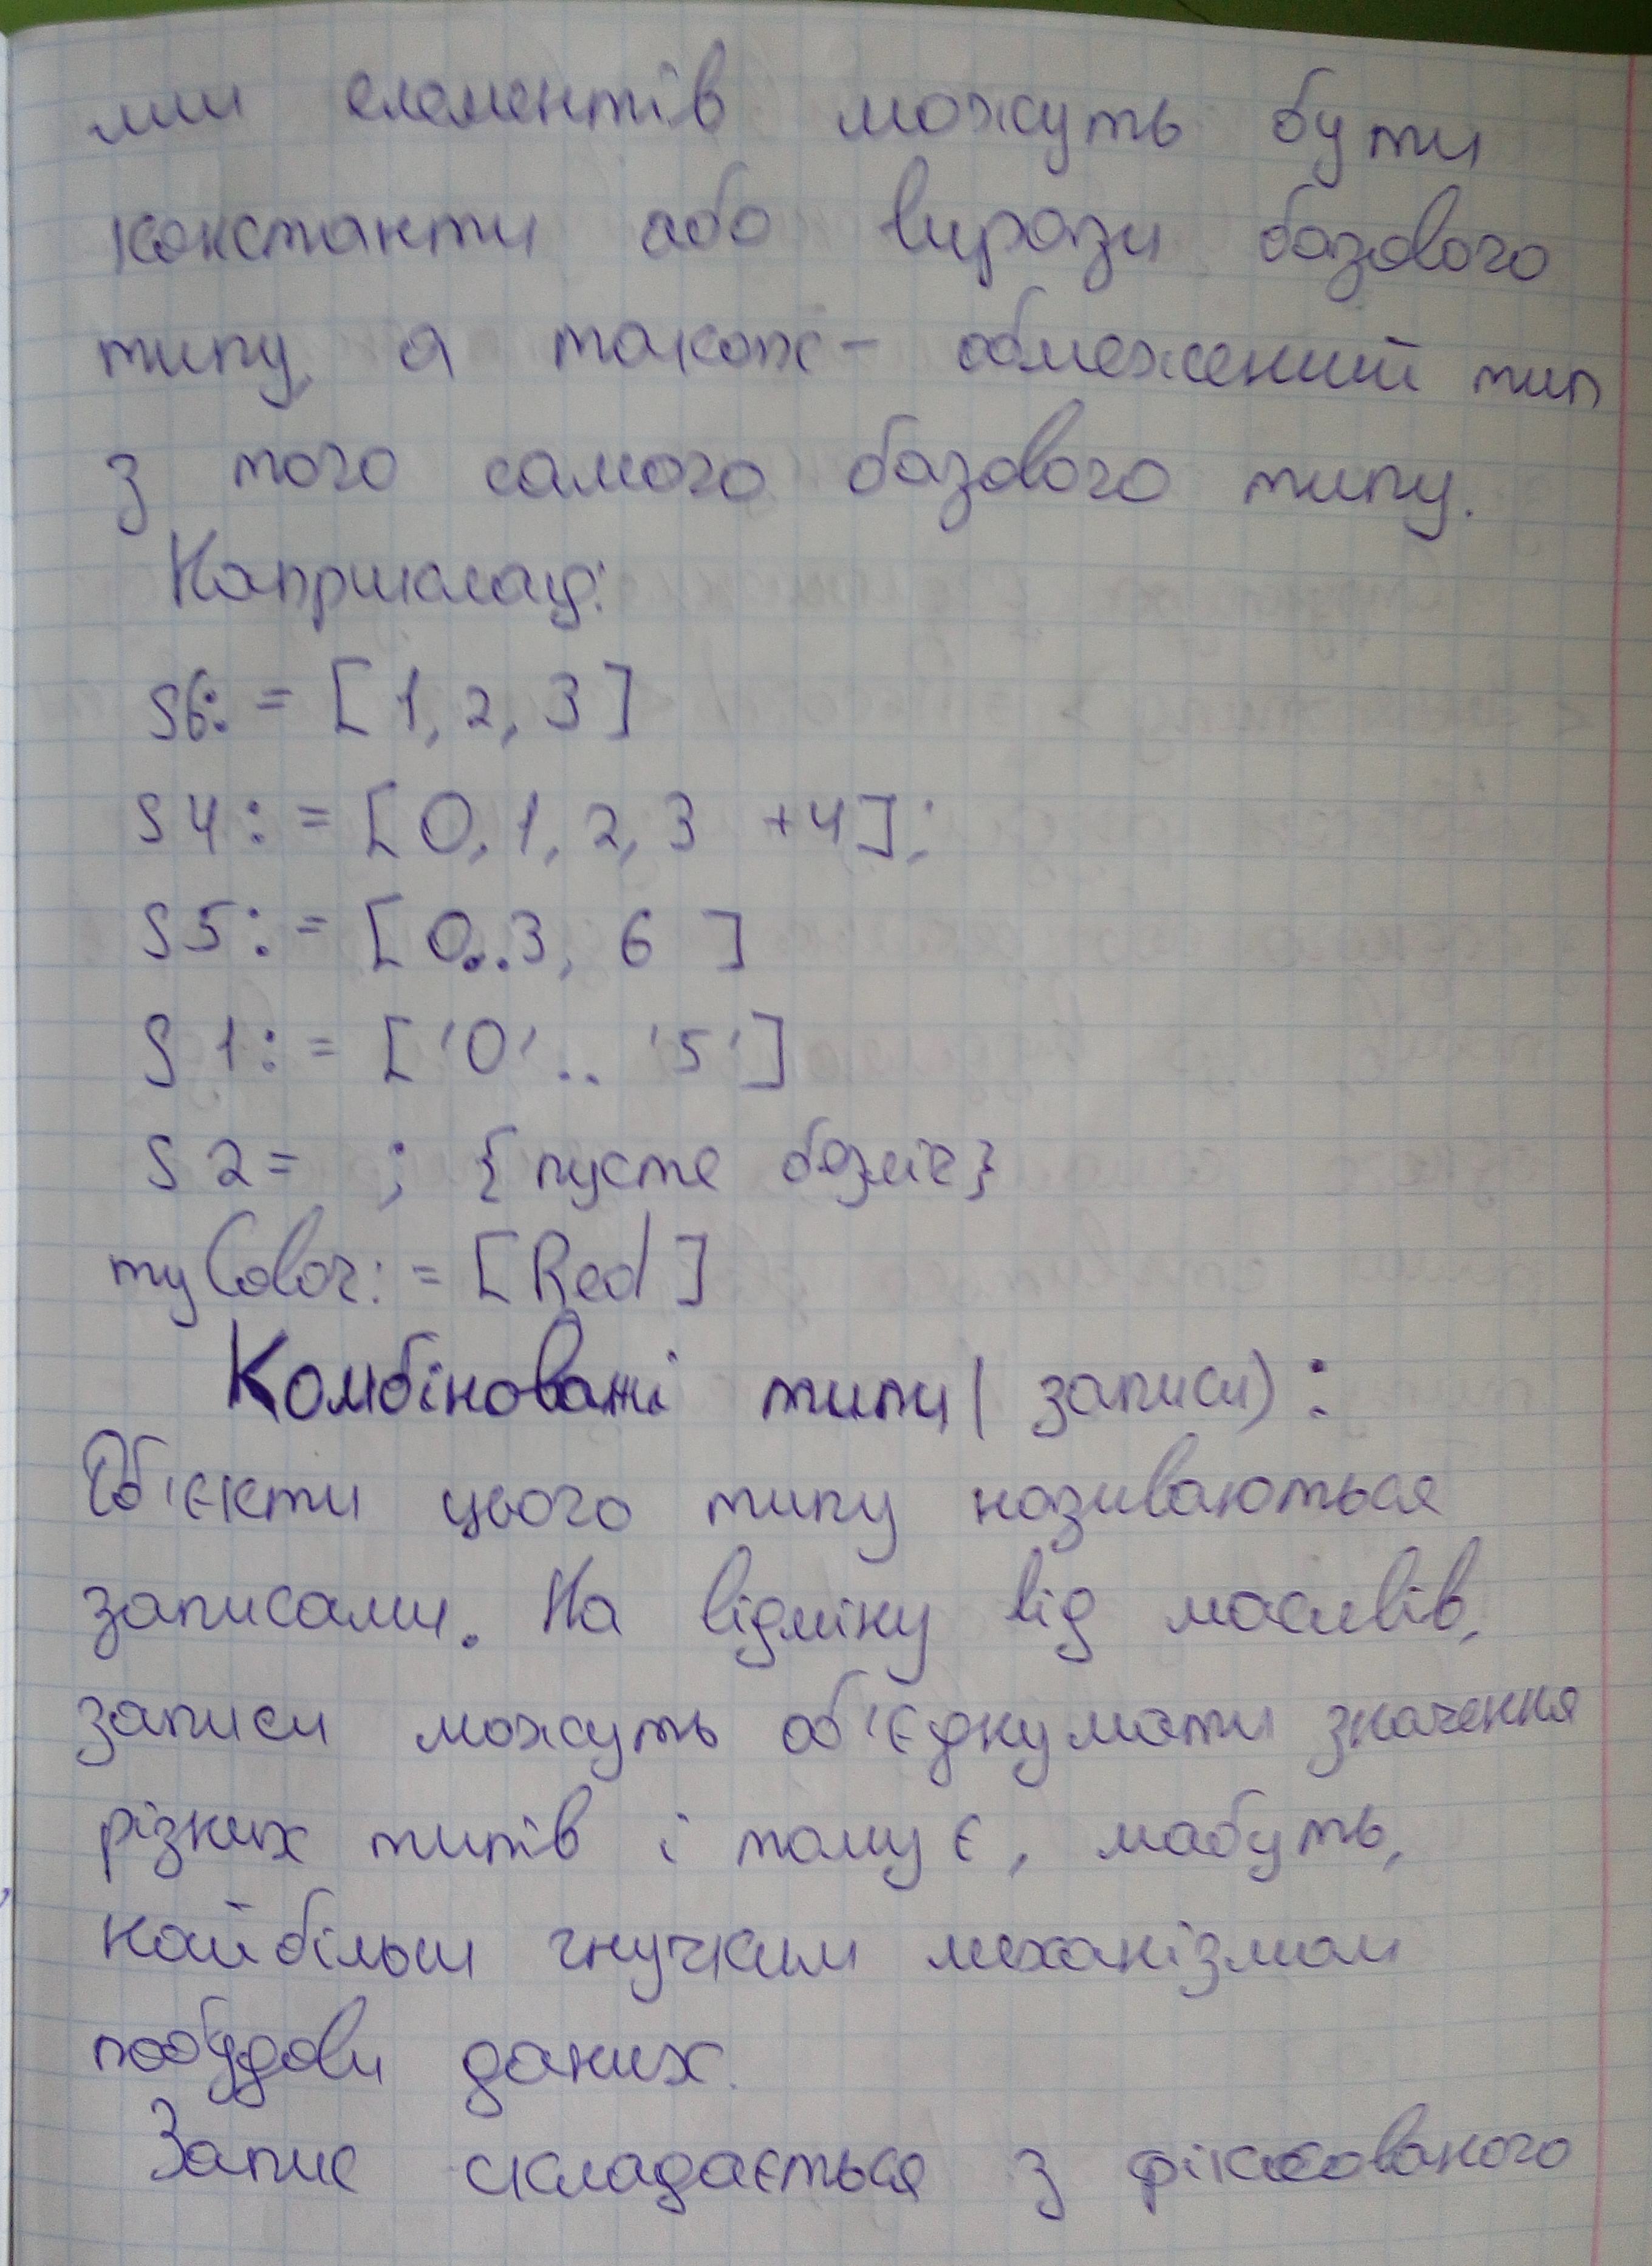 ми елементів можуть бути
константи або вирази базового
типу, а також - обмежений тип
з того самого базового типу.
Наприклад:
S6:= [1, 2, 3]
S4:= [0, 1, 2, 3 +4];
S5:= [0..3, 6 ]
S1:= ['0'.. '5']
S2= ; {пусте безліч}
myColor:= [Red]
Комбіновані типи (записи):
Об'єкти цього типу називаються
записами. На відміну від масивів,
записи можуть об'єднумати значення
різних типів і тому є, мабуть,
найбільш гнучким механізмом
побудови даних.
Запис складається з фіксованого